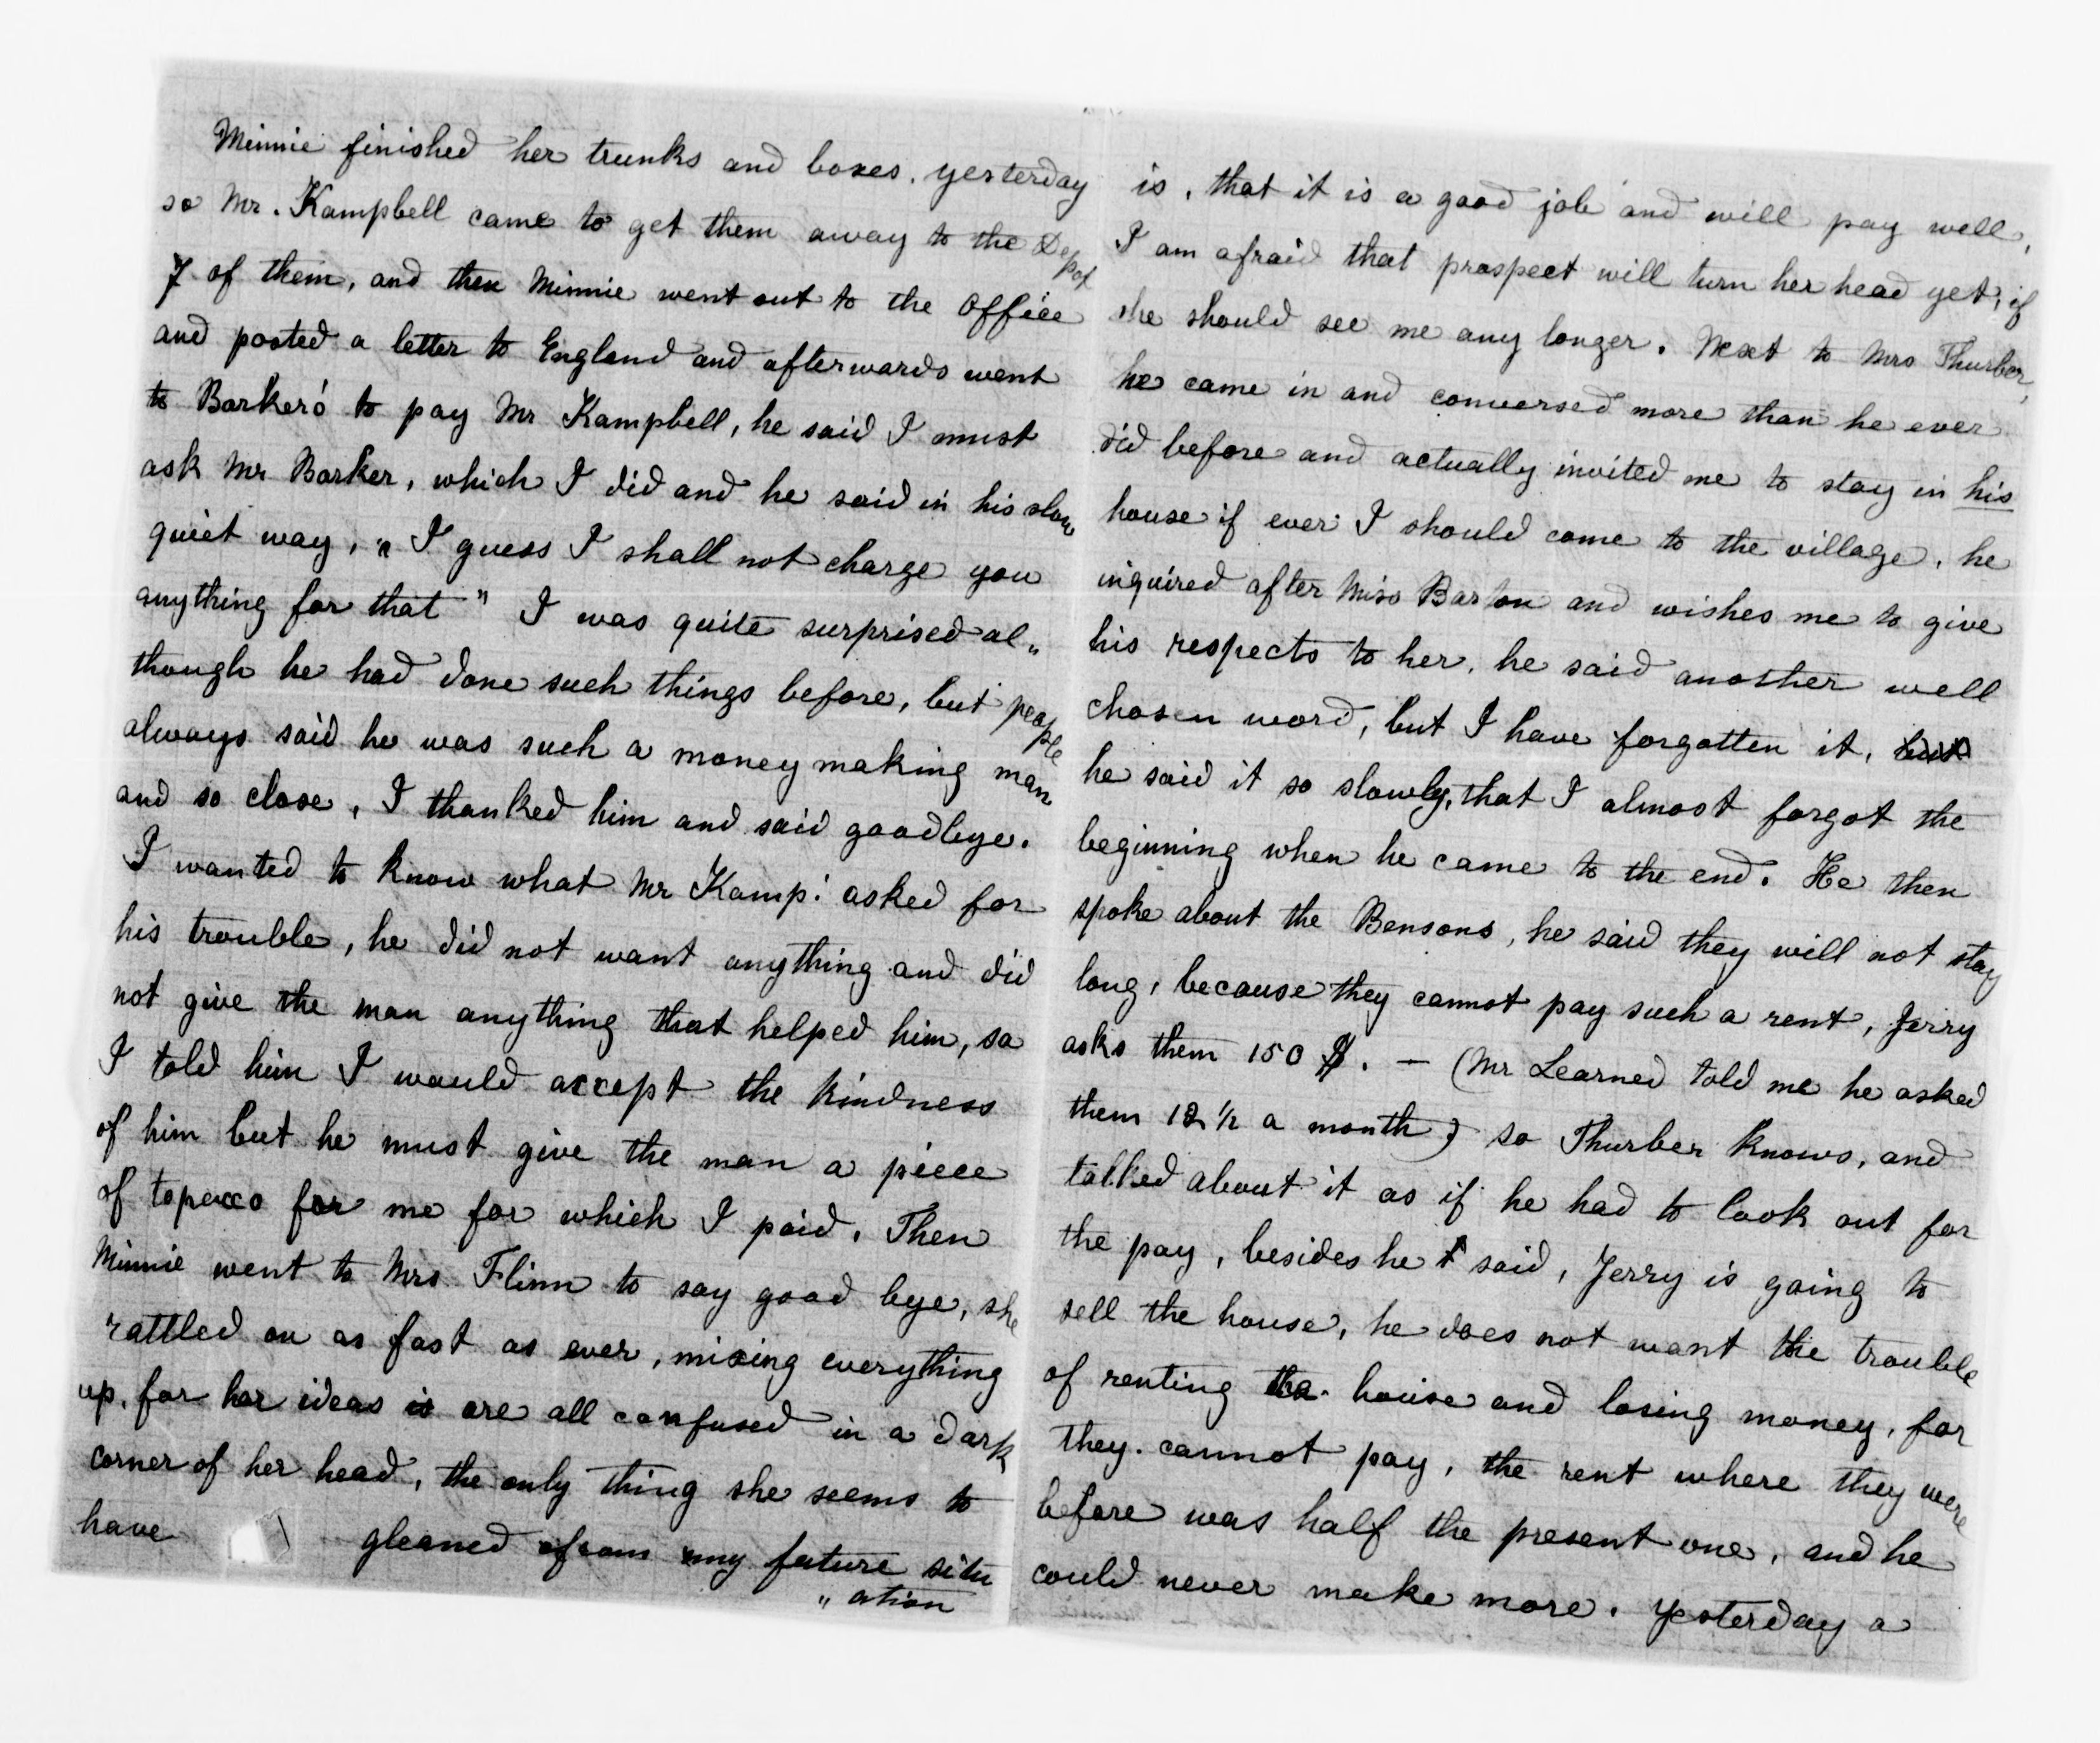 Minnie finished her trunks and boxes. yesterday
so Mr. Kampbell came to get them away to the Depot
7 of them, and then Minnie went out to the office
and posted a letter to England and afterwards went
to Barker's to pay Mr Kampbell, he said I must
ask Mr Barker, which I did and he said in his slow
quiet way, „ I guess I shall not charge you
anything for that " I was quite surprised al„
though he had done such things before, but people
always said he was such a money making man
and so close, I thanked him and said goodbye.
I wanted to know what Mr Kamp: asked for
his trouble, he did not want anything and did
not give the man anything that helped him, so
I told him I would accept the kindness
of him but he must give the man a piece
of topacco for me for which I paid. Then
Minnie went to Mrs Flinn to say good bye, she
rattled on as fast as ever, mixing everything
up, for her ideas is are all confused in a dark
corner of her head, the only thing she seems to
have gleaned from my future situ
„ ation
is, that it is a good job and will pay well,
I am afraid that prospect will turn her head yet, if
she should see me any longer. Next to Mrs Thurber,
he came in and conversed more than he ever
did before and actually invited me to stay in his
house if ever I should come to the village, he
inquired after Miss Barton and wishes me to give
his respects to her, he said another well
chosen word, but I have forgotten it, but
he said it so slowly, that I almost forgot the
beginning when he came to the end. He then
spoke about the Bensons, he said they will not stay
long, because they cannot pay such a rent, Jerry
asks them 150 $. — (Mr Learned told me he asked
them 12 1/2 a month) so Thurber knows, and
talked about it as if he had to look out for
the pay, besides he said, Jerry is going to
sell the house, he does not want the trouble
of renting the house and losing money, for
they cannot pay, the rent where they were
before was half the present one, and he
could never make more. Yesterday a